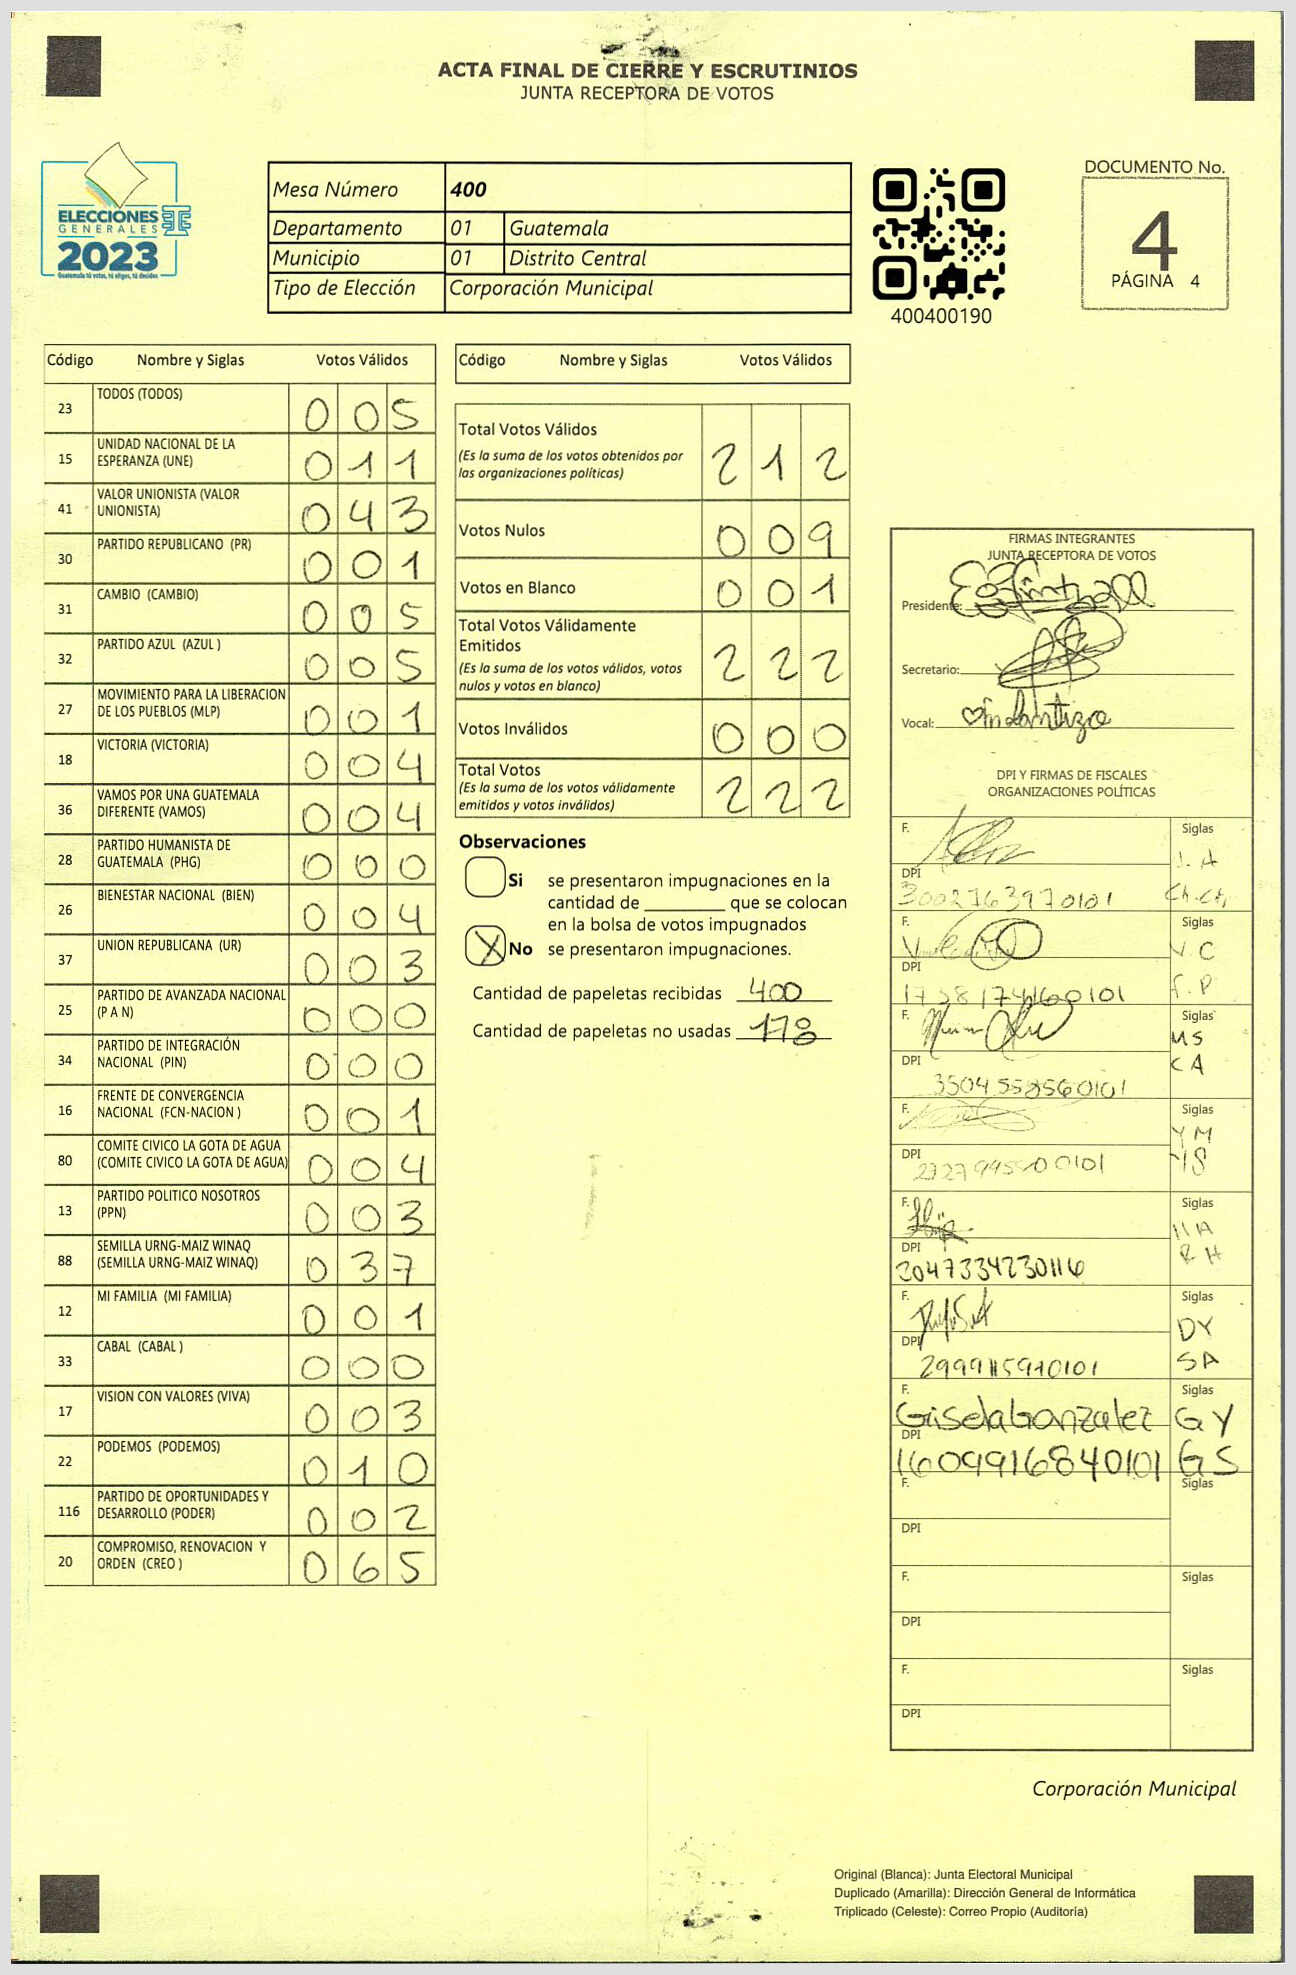 ACTA FINAL DE CIERRE Y ESCRUTINIOS
JUNTA RECEPTORA DE VOTOS
ELECCIONES
GENERALES
2023
Guatemala tú votas, tú eliges, tú decides
Mesa Número 400
Departamento 01 Guatemala
Municipio 01 Distrito Central
Tipo de Elección Corporación Municipal
400400190
DOCUMENTO No.
4
PÁGINA 4
Código Nombre y Siglas Votos Válidos
23 TODOS (TODOS) 0 0 5
15 UNIDAD NACIONAL DE LA ESPERANZA (UNE) 0 1 1
41 VALOR UNIONISTA (VALOR UNIONISTA) 0 4 3
30 PARTIDO REPUBLICANO (PR) 0 0 1
31 CAMBIO (CAMBIO) 0 0 5
32 PARTIDO AZUL (AZUL ) 0 0 5
27 MOVIMIENTO PARA LA LIBERACION DE LOS PUEBLOS (MLP) 0 0 1
18 VICTORIA (VICTORIA) 0 0 4
36 VAMOS POR UNA GUATEMALA DIFERENTE (VAMOS) 0 0 4
28 PARTIDO HUMANISTA DE GUATEMALA (PHG) 0 0 0
26 BIENESTAR NACIONAL (BIEN) 0 0 4
37 UNION REPUBLICANA (UR) 0 0 3
25 PARTIDO DE AVANZADA NACIONAL (P A N) 0 0 0
34 PARTIDO DE INTEGRACIÓN NACIONAL (PIN) 0 0 0
16 FRENTE DE CONVERGENCIA NACIONAL (FCN-NACION ) 0 0 1
80 COMITE CIVICO LA GOTA DE AGUA (COMITE CIVICO LA GOTA DE AGUA) 0 0 4
13 PARTIDO POLITICO NOSOTROS (PPN) 0 0 3
88 SEMILLA URNG-MAIZ WINAQ (SEMILLA URNG-MAIZ WINAQ) 0 3 7
12 MI FAMILIA (MI FAMILIA) 0 0 1
33 CABAL (CABAL ) 0 0 0
17 VISION CON VALORES (VIVA) 0 0 3
22 PODEMOS (PODEMOS) 0 1 0
116 PARTIDO DE OPORTUNIDADES Y DESARROLLO (PODER) 0 0 2
20 COMPROMISO, RENOVACION Y ORDEN (CREO ) 0 6 5
Código Nombre y Siglas Votos Válidos
Total Votos Válidos 2 1 2
(Es la suma de los votos obtenidos por
las organizaciones políticas)
Votos Nulos 0 0 9
Votos en Blanco 0 0 1
Total Votos Válidamente
Emitidos 2 2 2
(Es la suma de los votos válidos, votos
nulos y votos en blanco)
Votos Inválidos 0 0 0
Total Votos 2 2 2
(Es la suma de los votos válidamente
emitidos y votos inválidos)
Observaciones
Si se presentaron impugnaciones en la
cantidad de ________ que se colocan
en la bolsa de votos impugnados
X No se presentaron impugnaciones.
Cantidad de papeletas recibidas 400
Cantidad de papeletas no usadas 178
FIRMAS INTEGRANTES
JUNTA RECEPTORA DE VOTOS
Presidente:
Secretario:
Vocal:
DPI Y FIRMAS DE FISCALES
ORGANIZACIONES POLÍTICAS
F. Siglas
DPI
F. Siglas
V. C
DPI
F. P
F. Siglas
MS
DPI CA
F. Siglas
YM
DPI
F. Siglas
DPI RH
F. Siglas
DY
DPI SA
F. Siglas
Gisela Gonzalez GY
DPI
1609916840101 GS
F. Siglas
DPI
F. Siglas
DPI
F. Siglas
DPI
Corporación Municipal
Original (Blanca): Junta Electoral Municipal
Duplicado (Amarilla): Dirección General de Informática
Triplicado (Celeste): Correo Propio (Auditoría)